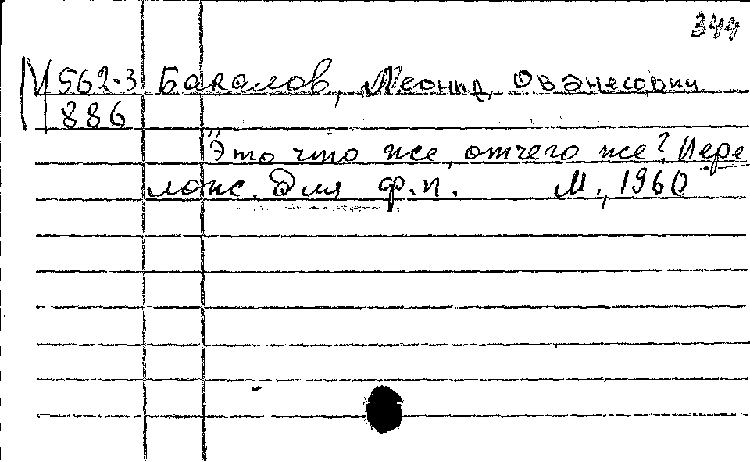 344
М 562-3 Бакалов, Леонид Ованесович
886
"Это что же, отчего же? Пере
лож. для ф.п. М., 1960